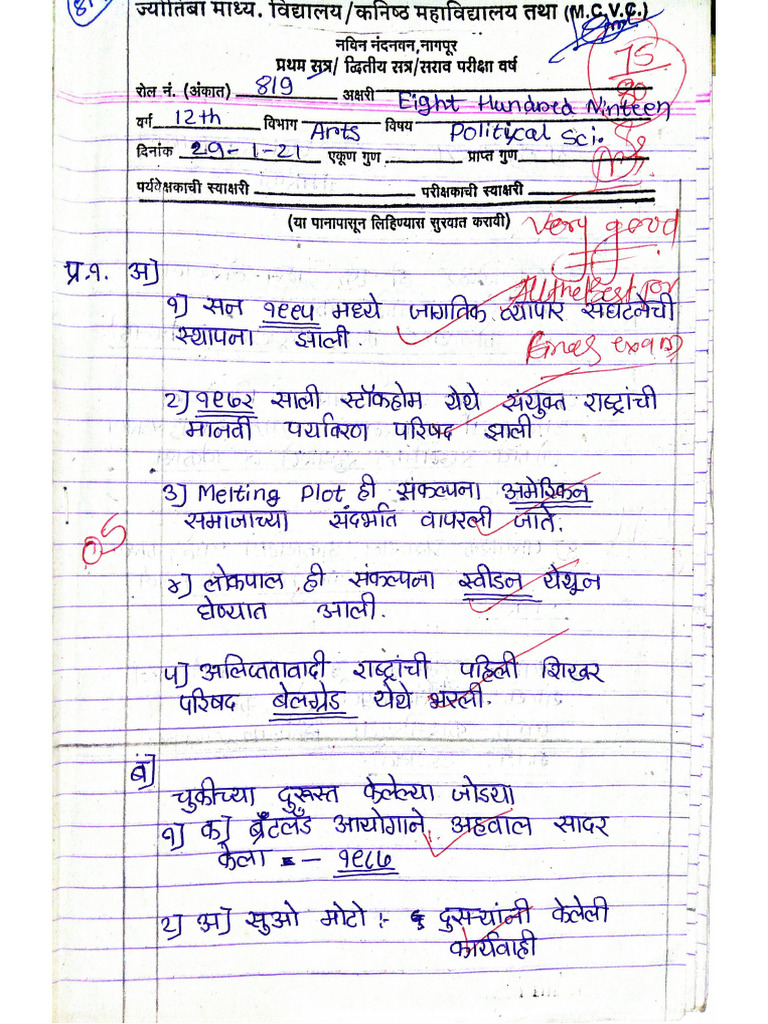 819
ज्योतिबा माध्य. विद्यालय/कनिष्ठ महाविद्यालय तथा (M.C.V.C.)
नविन नंदनवन, नागपूर
प्रथम सत्र/ द्वितीय सत्र/सराव परीक्षा वर्ष
75
80
रोल नं. (अंकात) 819 अक्षरी Eight Hundred Ninteen
वर्ग 12th विभाग Arts विषय Political Sci.
दिनांक 29-1-21 एकूण गुण प्राप्त गुण
पर्यवेक्षकाची स्वाक्षरी परीक्षकाची स्वाक्षरी
(या पानापासून लिहिण्यास सुरवात करावी)
Very good
All the Best for
प्र.१. अ]
१] सन १९९५ मध्ये जागतिक व्यापार संघटनेची
स्थापना झाली.
exam
२] १९७२ साली स्टॉकहोम येथे संयुक्त राष्ट्रांची
मानवी पर्यावरण परिषद झाली
३] Melting Plot ही संकल्पना अमेरिकन
समाजाच्या संदर्भात वापरली जाते.
05
४] लोकपाल ही संकल्पना स्वीडन येथून
घेण्यात आली.
५] अलिप्ततावादी राष्ट्रांची पहिली शिखर
परिषद बेलग्रेड येथे भरली.
ब]
चुकीच्या दुरूस्त केलेल्या जोडया
१] क] ब्रँटलँड आयोगाने अहवाल सादर
केला - १९८७
२] अ] सुओ मोटो :- दुसऱ्यांनी केलेली
कार्यवाही